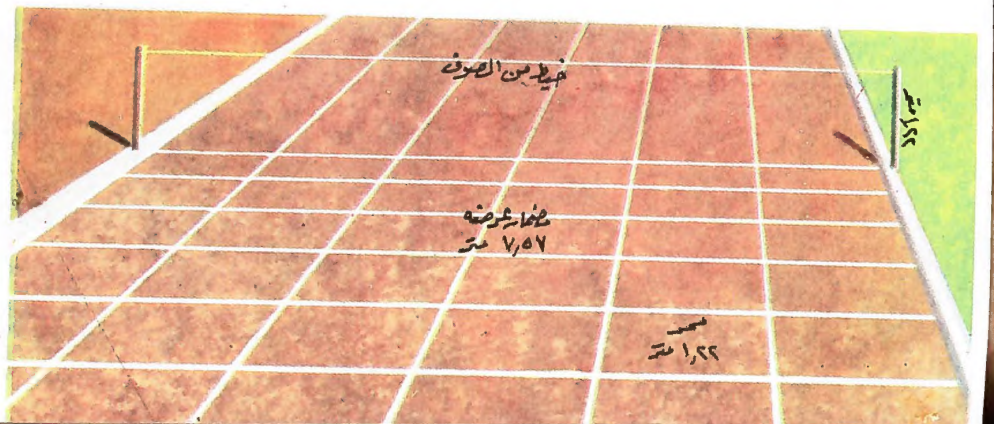 خيط من الصوف
مضمار عرضه
٧,٥٧ متر
ممر
١,٢٢ متر